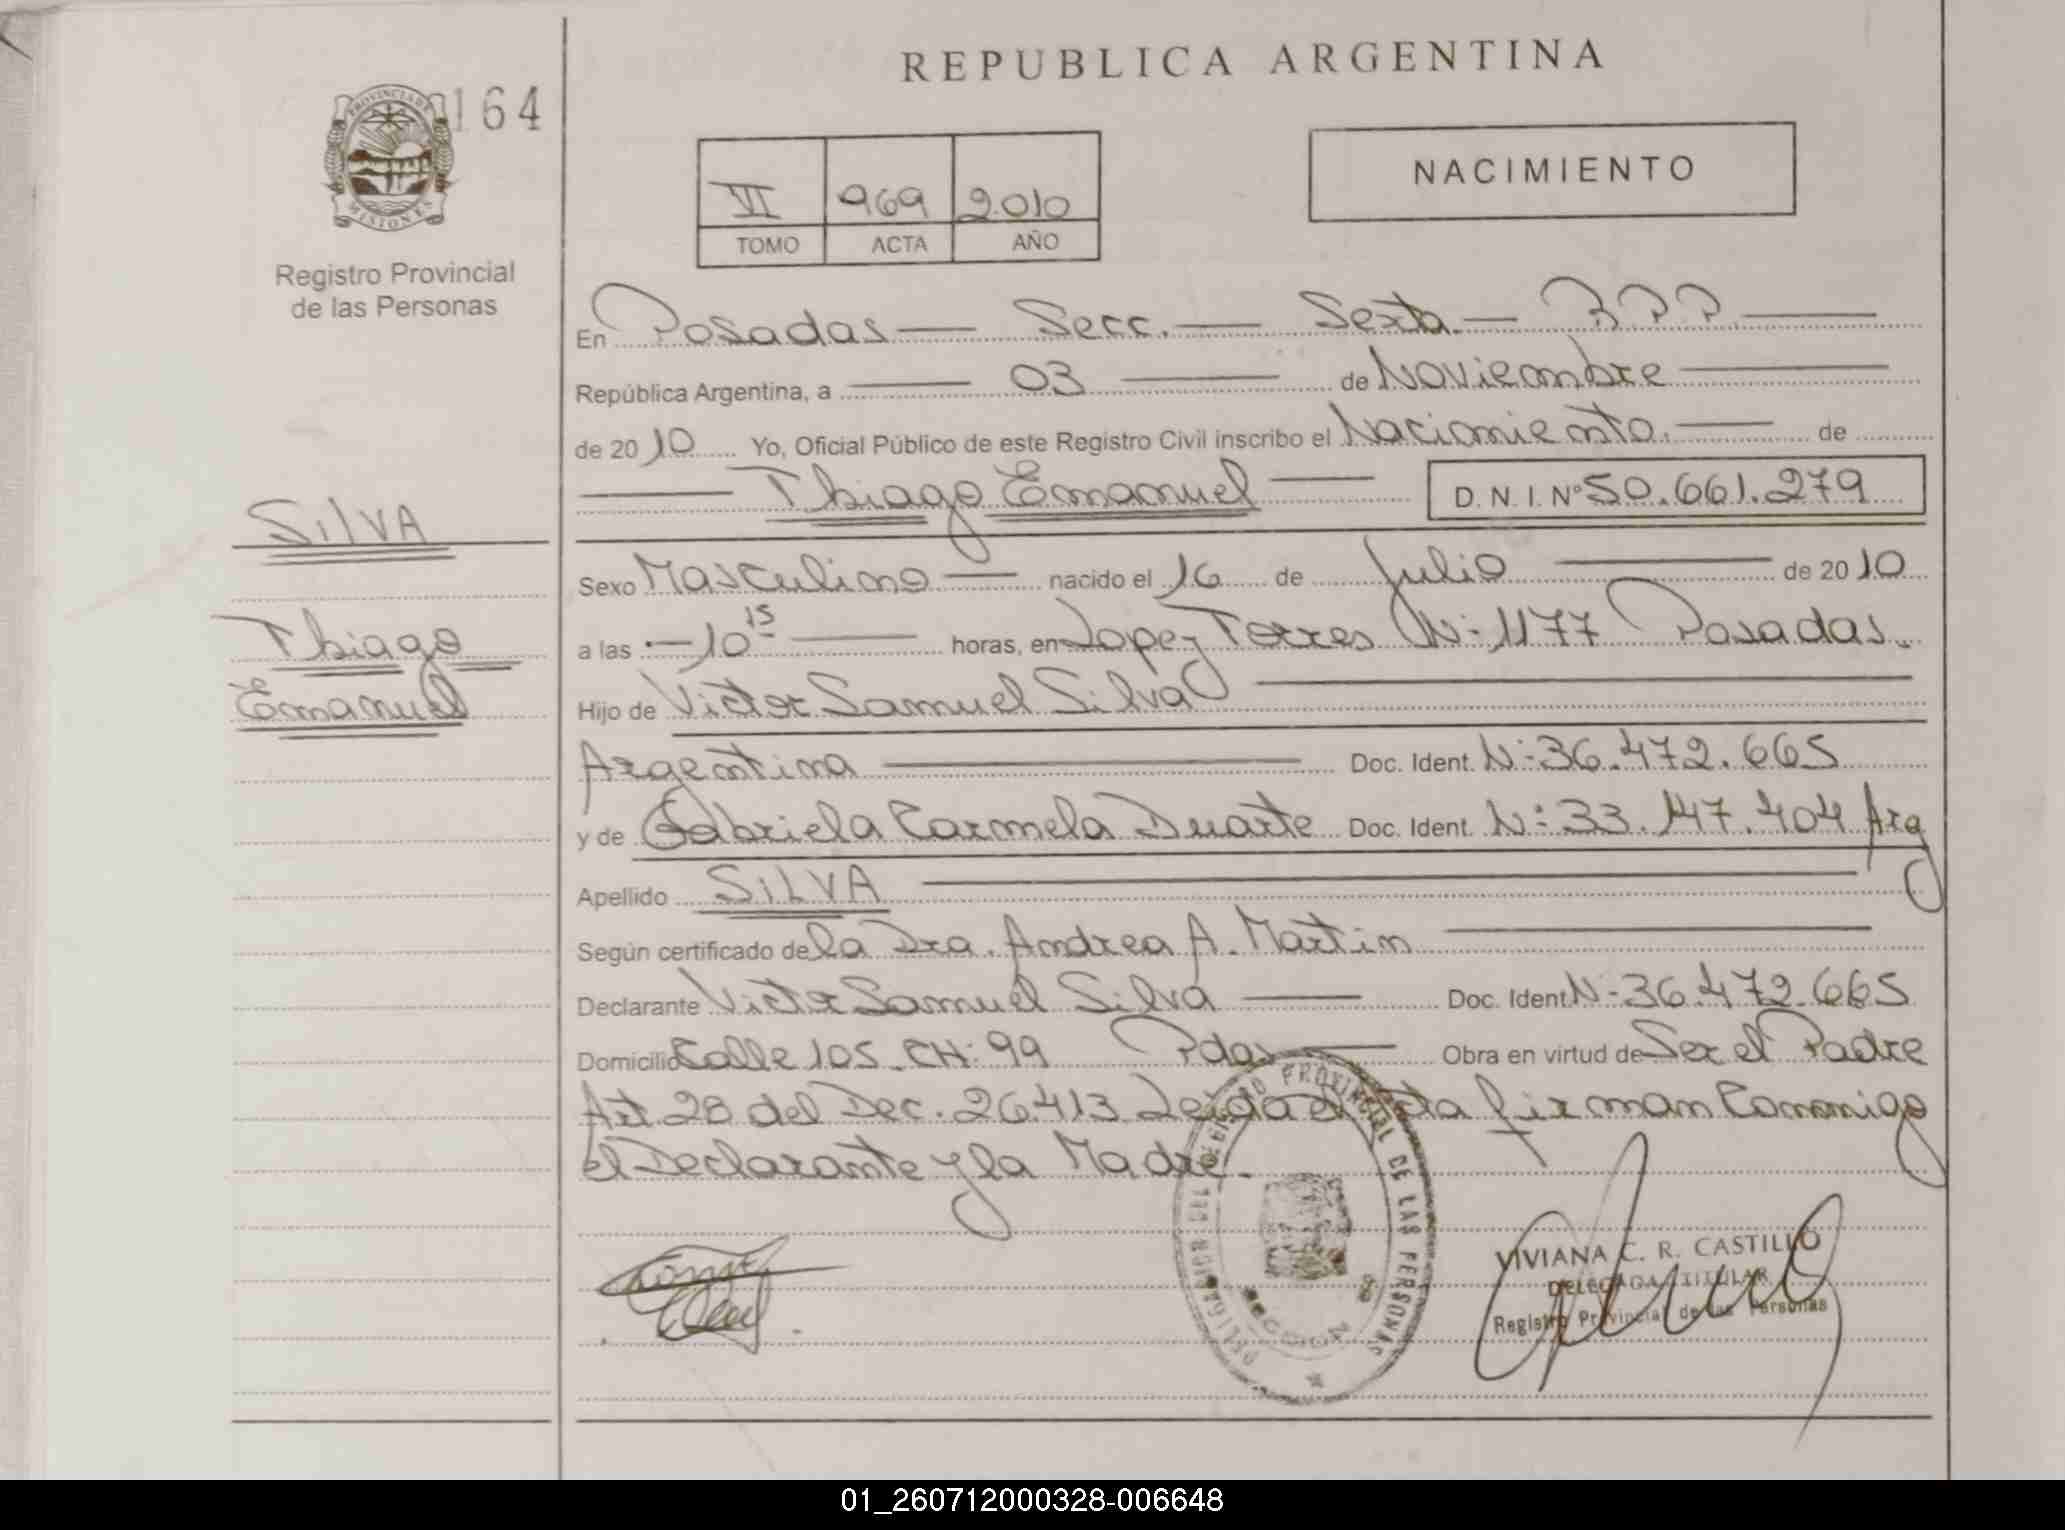 REPUBLICA ARGENTINA
PROVINCIA DE
MISIONES
164
Registro Provincial
de las Personas
VI 969 2010
TOMO ACTA AÑO
NACIMIENTO
En Posadas Secc. Sexta R P P
República Argentina, a 03 de Noviembre
de 2010 Yo, Oficial Público de este Registro Civil inscribo el Nacimiento. de
Thiago Emanuel D. N. I. Nº 50.661.279
SILVA
Thiago
Emanuel
Sexo Masculino nacido el 16 de Julio de 2010
a las 10 15 horas, en Lopez Torres Nº 1177 Posadas.
Hijo de Victor Samuel Silva
Argentina Doc. Ident. Nº 36.472.665
y de Gabriela Carmela Duarte Doc. Ident. Nº 33.147.404 Arg
Apellido SILVA
Según certificado de la Dra. Andrea A. Martin
Declarante Victor Samuel Silva Doc. Ident Nº 36.472.665
Domicilio Calle 105 CH: 99 Pdas Obra en virtud de Ser el Padre
Art 28 del Dec. 26413 Leida el Acta firman Conmigo
el Declarante y la Madre.
PROVINCIAL DE LAS PERSONAS
SECCION
VIVIANA C. R. CASTILLO
DELEGADA TITULAR
Registro Provincial de las Personas
01_260712000328-006648